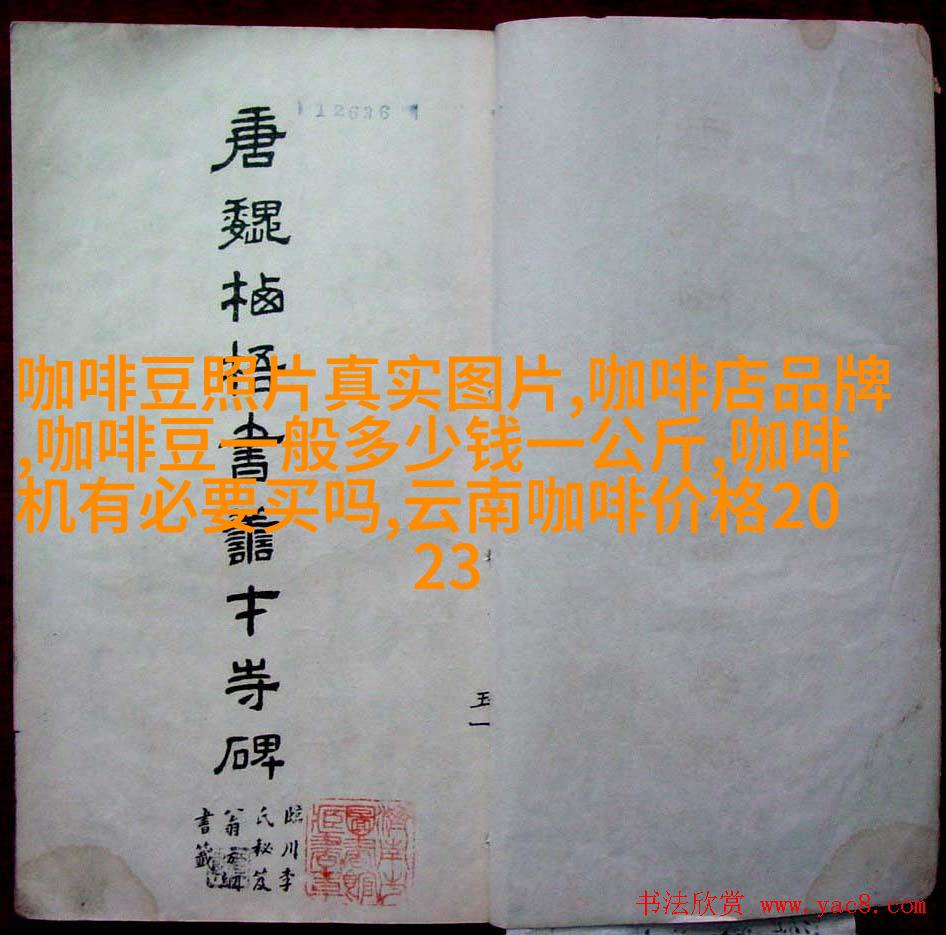 12636
唐魏栖梧書善才寺碑
咖啡豆照片真实图片,咖啡店品牌
,咖啡豆一般多少钱一公斤,咖啡
机有必要买吗,云南咖啡价格20
23
五一
臨川李
氏秘笈
翁方綱
書籤
濟南市
圖書館
藏書章
书法欣赏 www.yac8.com